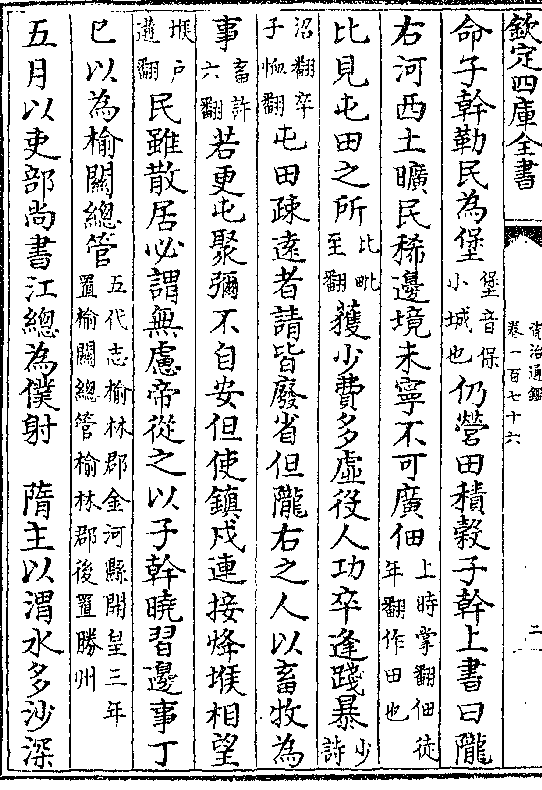 欽定四庫全書
資治通鑑
卷一百七十六
二
命子幹勒民為堡堡音保小城也仍營田積穀子幹上書曰隴
右河西土曠民稀邊境未寧不可廣佃上時掌翻佃徒年翻作田也
比見屯田之所比毗至翻獲少費多虛役人功卒逢踐暴少詩
沼翻卒子恤翻屯田疎遠者請皆廢省但隴右之人以畜牧為
事畜許六翻若更屯聚彌不自安但使鎮戍連接烽堠相望
堠戶遘翻民雖散居必謂無慮帝從之以子幹曉習邊事丁
巳以為榆關總管五代志榆林郡金河縣開皇三年置榆關總管榆林郡後置勝州
五月以吏部尚書江總為僕射　隋主以渭水多沙深